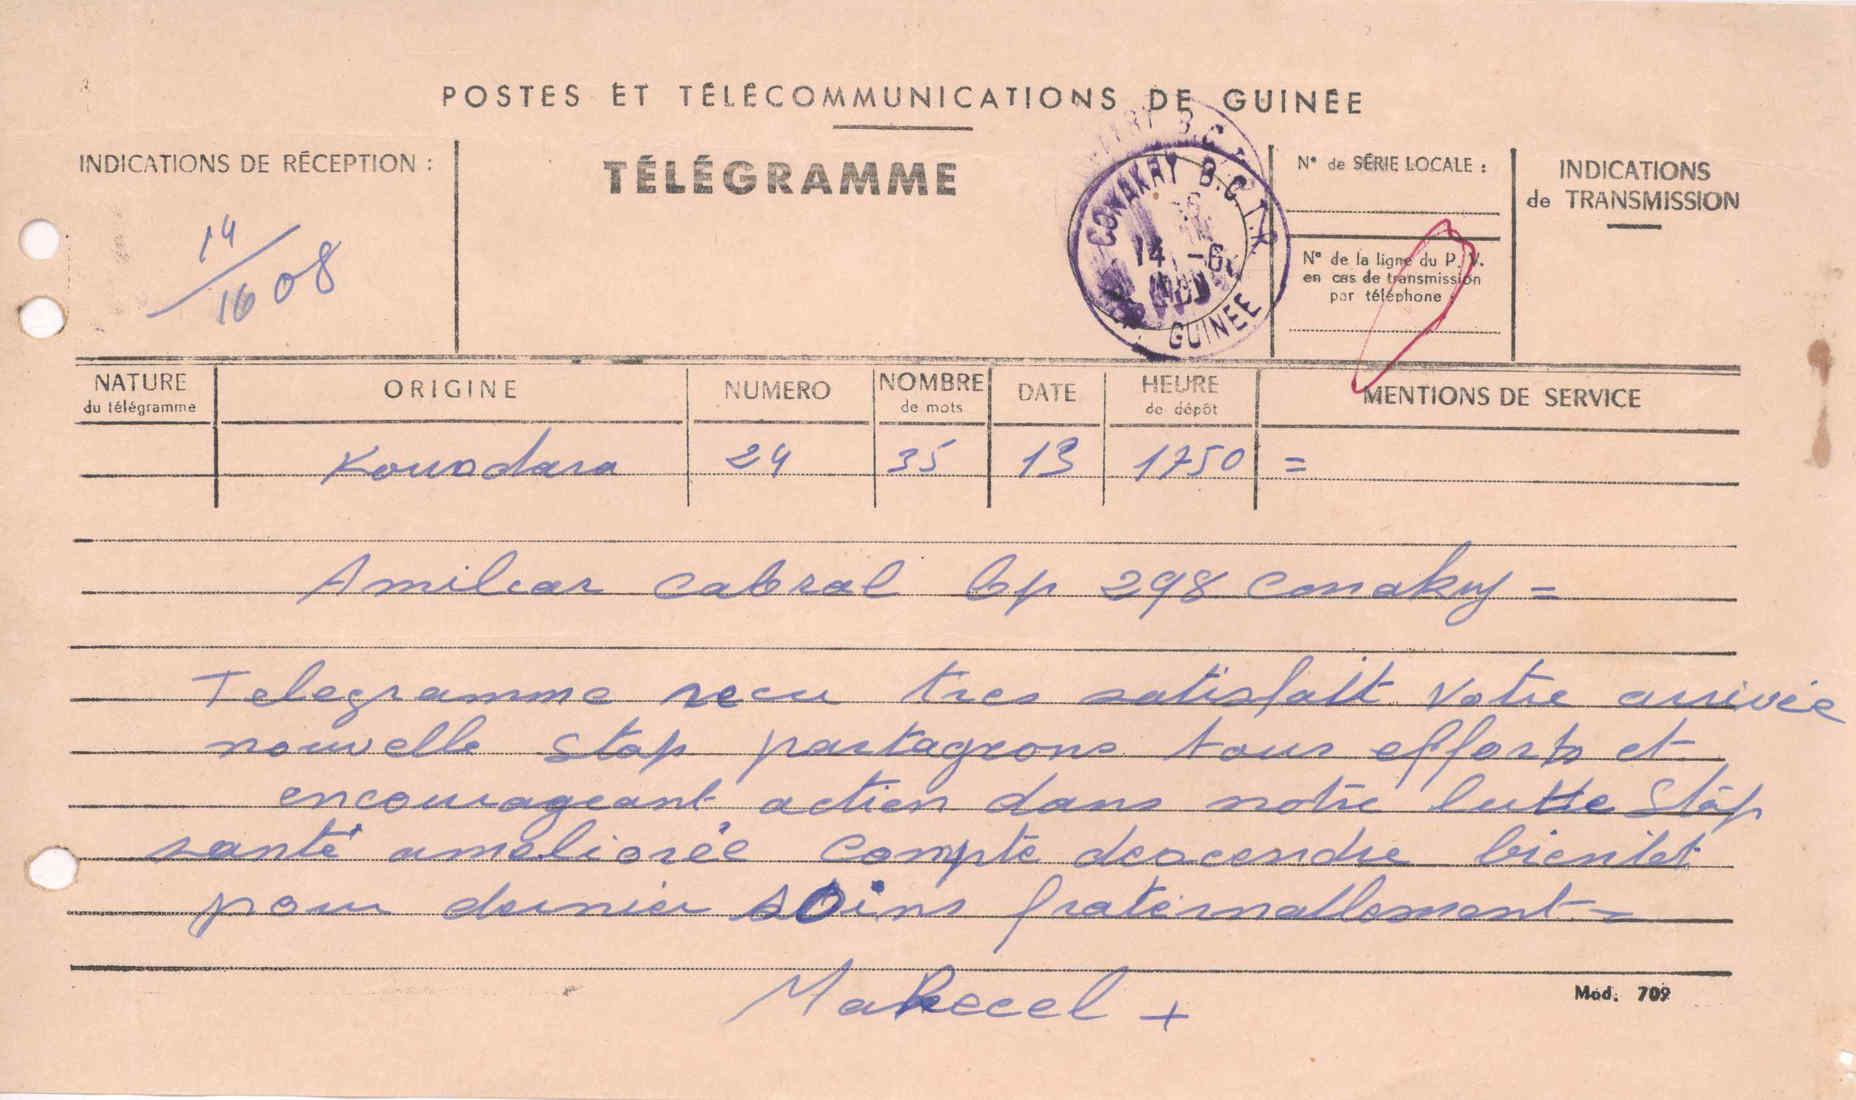 POSTES ET TÉLÉCOMMUNICATIONS DE GUINÉE
INDICATIONS DE RÉCEPTION :
TÉLÉGRAMME
CONAKRY B.C.T.R.
14
GUINEE
N° de SÉRIE LOCALE :
N° de la ligne du P. V.
en cas de transmission
par téléphone :
INDICATIONS
de TRANSMISSION
14/1608
NATURE
du télégramme
ORIGINE
NUMERO
NOMBRE
de mots
DATE
HEURE
de dépôt
MENTIONS DE SERVICE
Kouodara 24 35 13 1750 =
Amilcar Cabral bp 298 Conakry =
Telegramme recu tres satisfait votre arrivée
nouvelle stop partageons tous efforts et
encourageant action dans notre lutte stop
santé ameliorée compte descendre bientot
pour dernier soins fraternallement =
Marecel +
Mod. 709